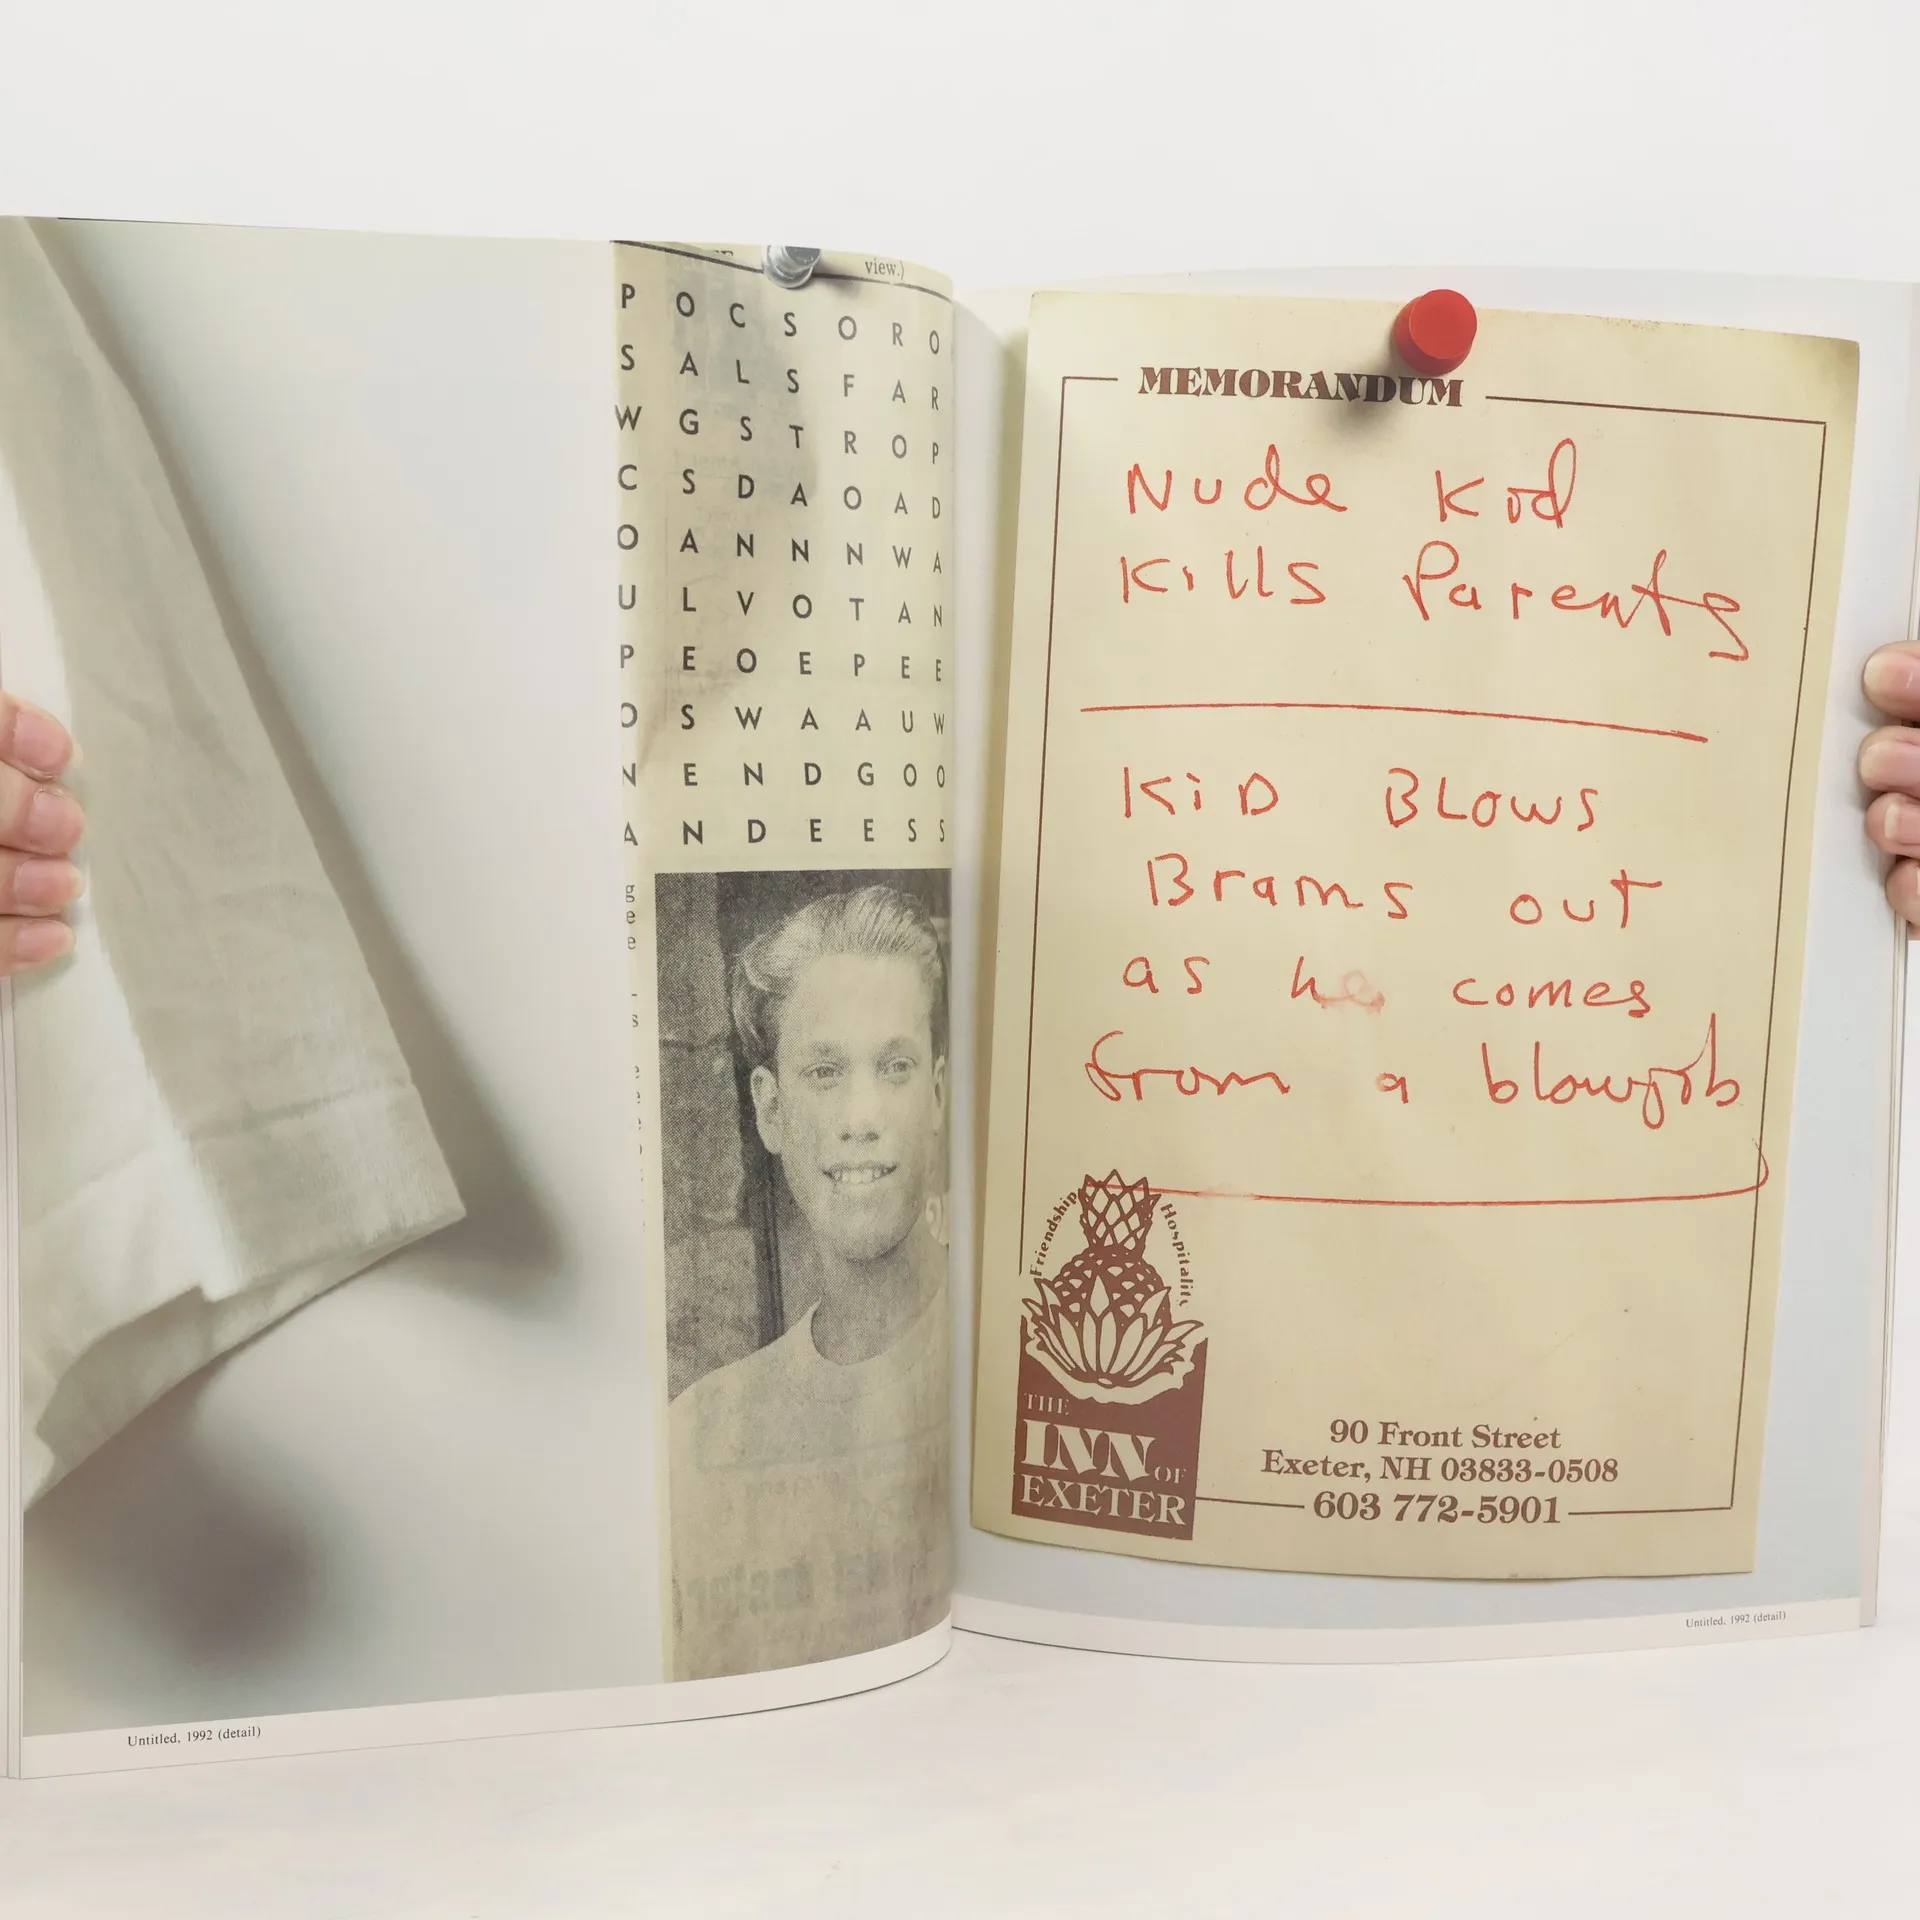 view.)
P O C S O R O
S A L S F A R
W G S T R O P
C S D A O A D
O A N N N W A
U L V O T A N
P E O E P E E
O S W A A U W
N E N D G O O
A N D E E S S
g
ee
e
s
Untitled, 1992 (detail)
MEMORANDUM
Nude Kid
Kills Parents
KiD BLOWS
Brains out
as he comes
from a blowjob
Friendship Hospitality
THE
INN OF
EXETER
90 Front Street
Exeter, NH 03833-0508
603 772-5901
Untitled, 1992 (detail)